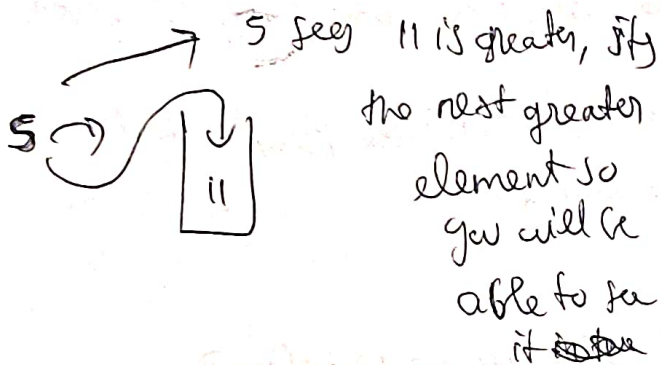 5 sees 11 is greater, its
the next greater
5
element so
11
you will be
able to see
it